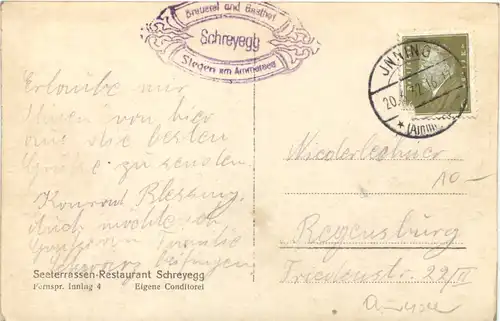 Brauerei und Gasthof
Schreyegg
Stegen am Ammersee
INNING
20.
Erlaube mir
Ihnen von hier
aus die besten
Grüße zu senden.
Konrad Blessing.
Auch möchte ich
Grüße an Familie
beifügen
Niederlechner
10-
Regensburg
Friedenstr. 22/II
Seeterrassen-Restaurant Schreyegg
Fernspr. Inning 4 Eigene Conditorei